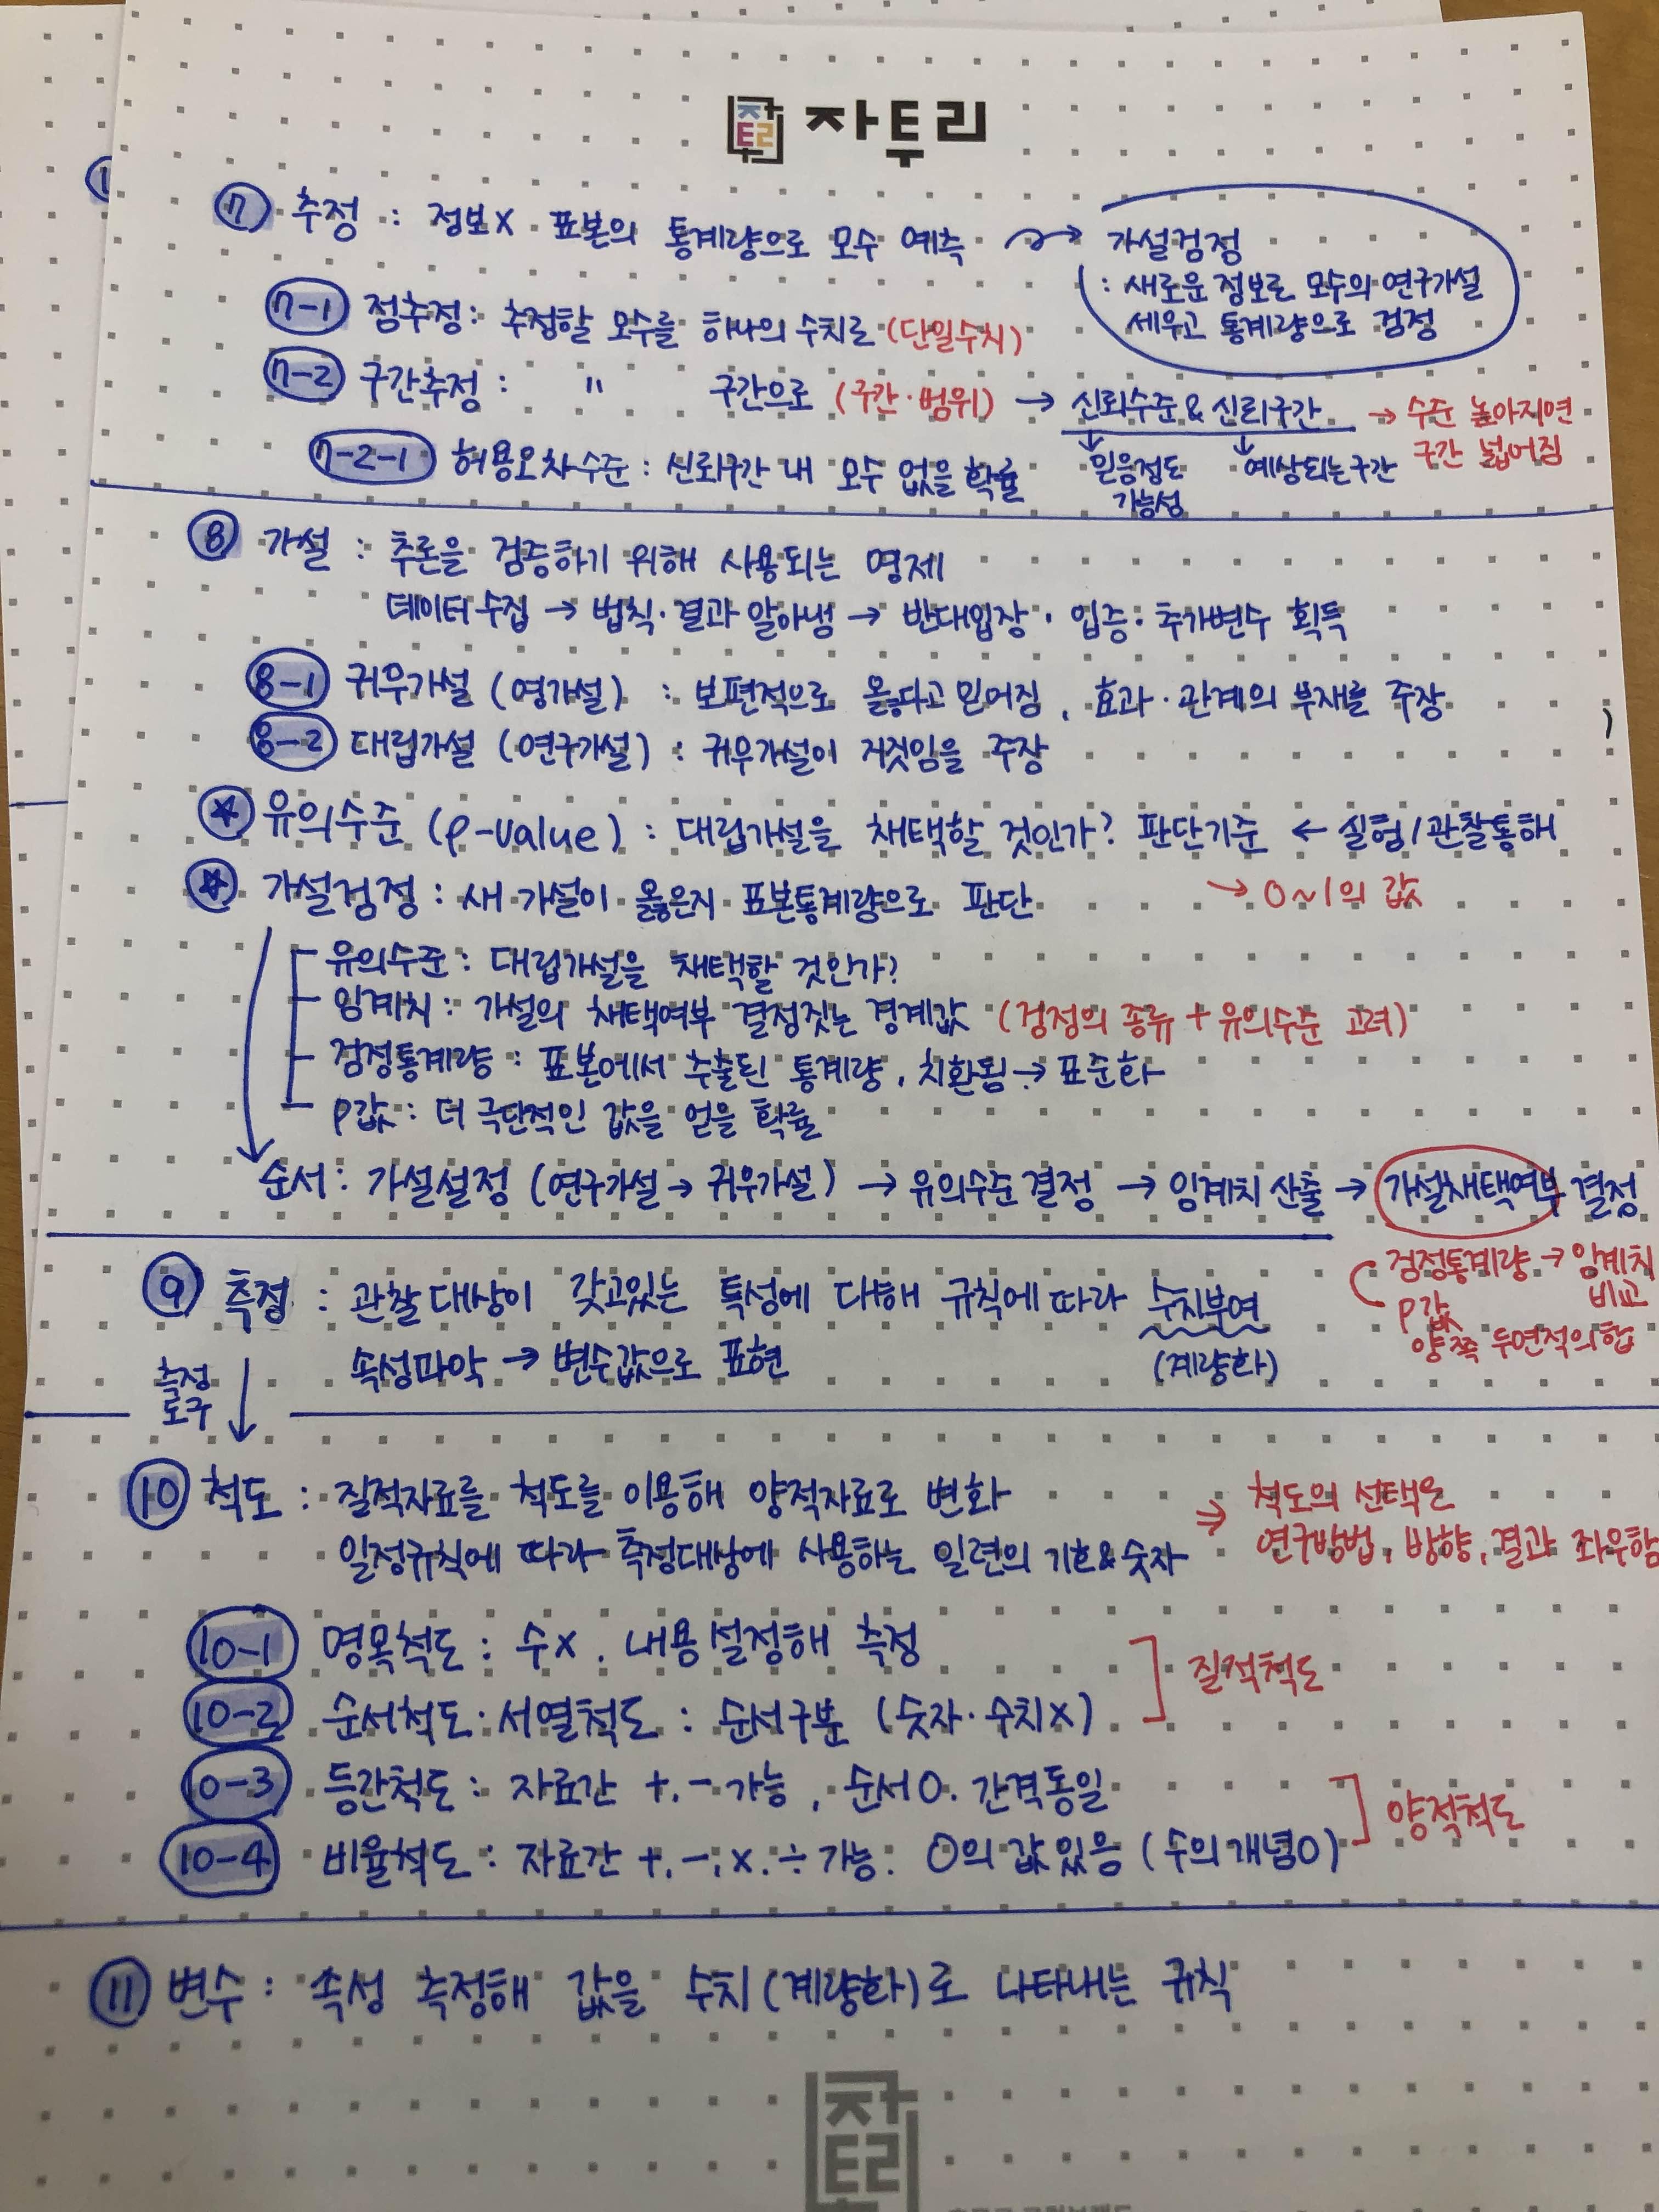 자투리
⑦ 추정 : 정보X 표본의 통계량으로 모수 예측 → 가설검정
: 새로운 정보로 모수의 연구가설
세우고 통계량으로 검정
7-1 점추정 : 추정할 모수를 하나의 수치로 (단일수치)
7-2 구간추정 : 〃 구간으로 (구간·범위) → 신뢰수준 & 신뢰구간 → 수준 높아지면
구간 넓어짐
↓ 믿음정도 가능성
↓ 예상되는 구간
7-2-1 허용오차수준 : 신뢰구간 내 모수 없을 확률
⑧ 가설 : 추론을 검증하기 위해 사용되는 명제
데이터 수집 → 법칙·결과 알아냄 → 반대입장·입증·추가변수 획득
8-1 귀무가설 (영가설) : 보편적으로 옳다고 믿어짐, 효과·관계의 부재를 주장
8-2 대립가설 (연구가설) : 귀무가설이 거짓임을 주장
☆ 유의수준 (p-value) : 대립가설을 채택할 것인가? 판단기준 ← 실험/관찰통해
→ 0~1의 값
☆ 가설검정 : 새 가설이 옳은지 표본통계량으로 판단
유의수준 : 대립가설을 채택할 것인가?
임계치 : 가설의 채택여부 결정짓는 경계값 (검정의 종류 + 유의수준 고려)
검정통계량 : 표본에서 추출된 통계량, 치환됨 → 표준화
P값 : 더 극단적인 값을 얻을 확률
순서 : 가설설정 (연구가설 → 귀무가설) → 유의수준 결정 → 임계치 산출 → 가설채택여부 결정
검정통계량 → 임계치 비교
P값
양쪽 두면적의 합
⑨ 측정 : 관찰대상이 갖고있는 특성에 대해 규칙에 따라 수치부여
(계량화)
속성파악 → 변수값으로 표현
측정
도구 ↓
⑩ 척도 : 질적자료를 척도를 이용해 양적자료로 변화
일정규칙에 따라 측정대상에 사용하는 일련의 기호&숫자
⇒ 척도의 선택은
연구방법, 방향, 결과 좌우함
10-1 명목척도 : 수X. 내용 설정해 측정
10-2 순서척도·서열척도 : 순서구분 (숫자·수치X)
질적척도
10-3 등간척도 : 자료간 +, - 가능, 순서O. 간격동일
10-4 비율척도 : 자료간 +, -, X, ÷ 가능. 0의 값 있음 (수의 개념O)
양적척도
⑪ 변수 : 속성 측정해 값을 수치(계량화)로 나타내는 규칙
자투리